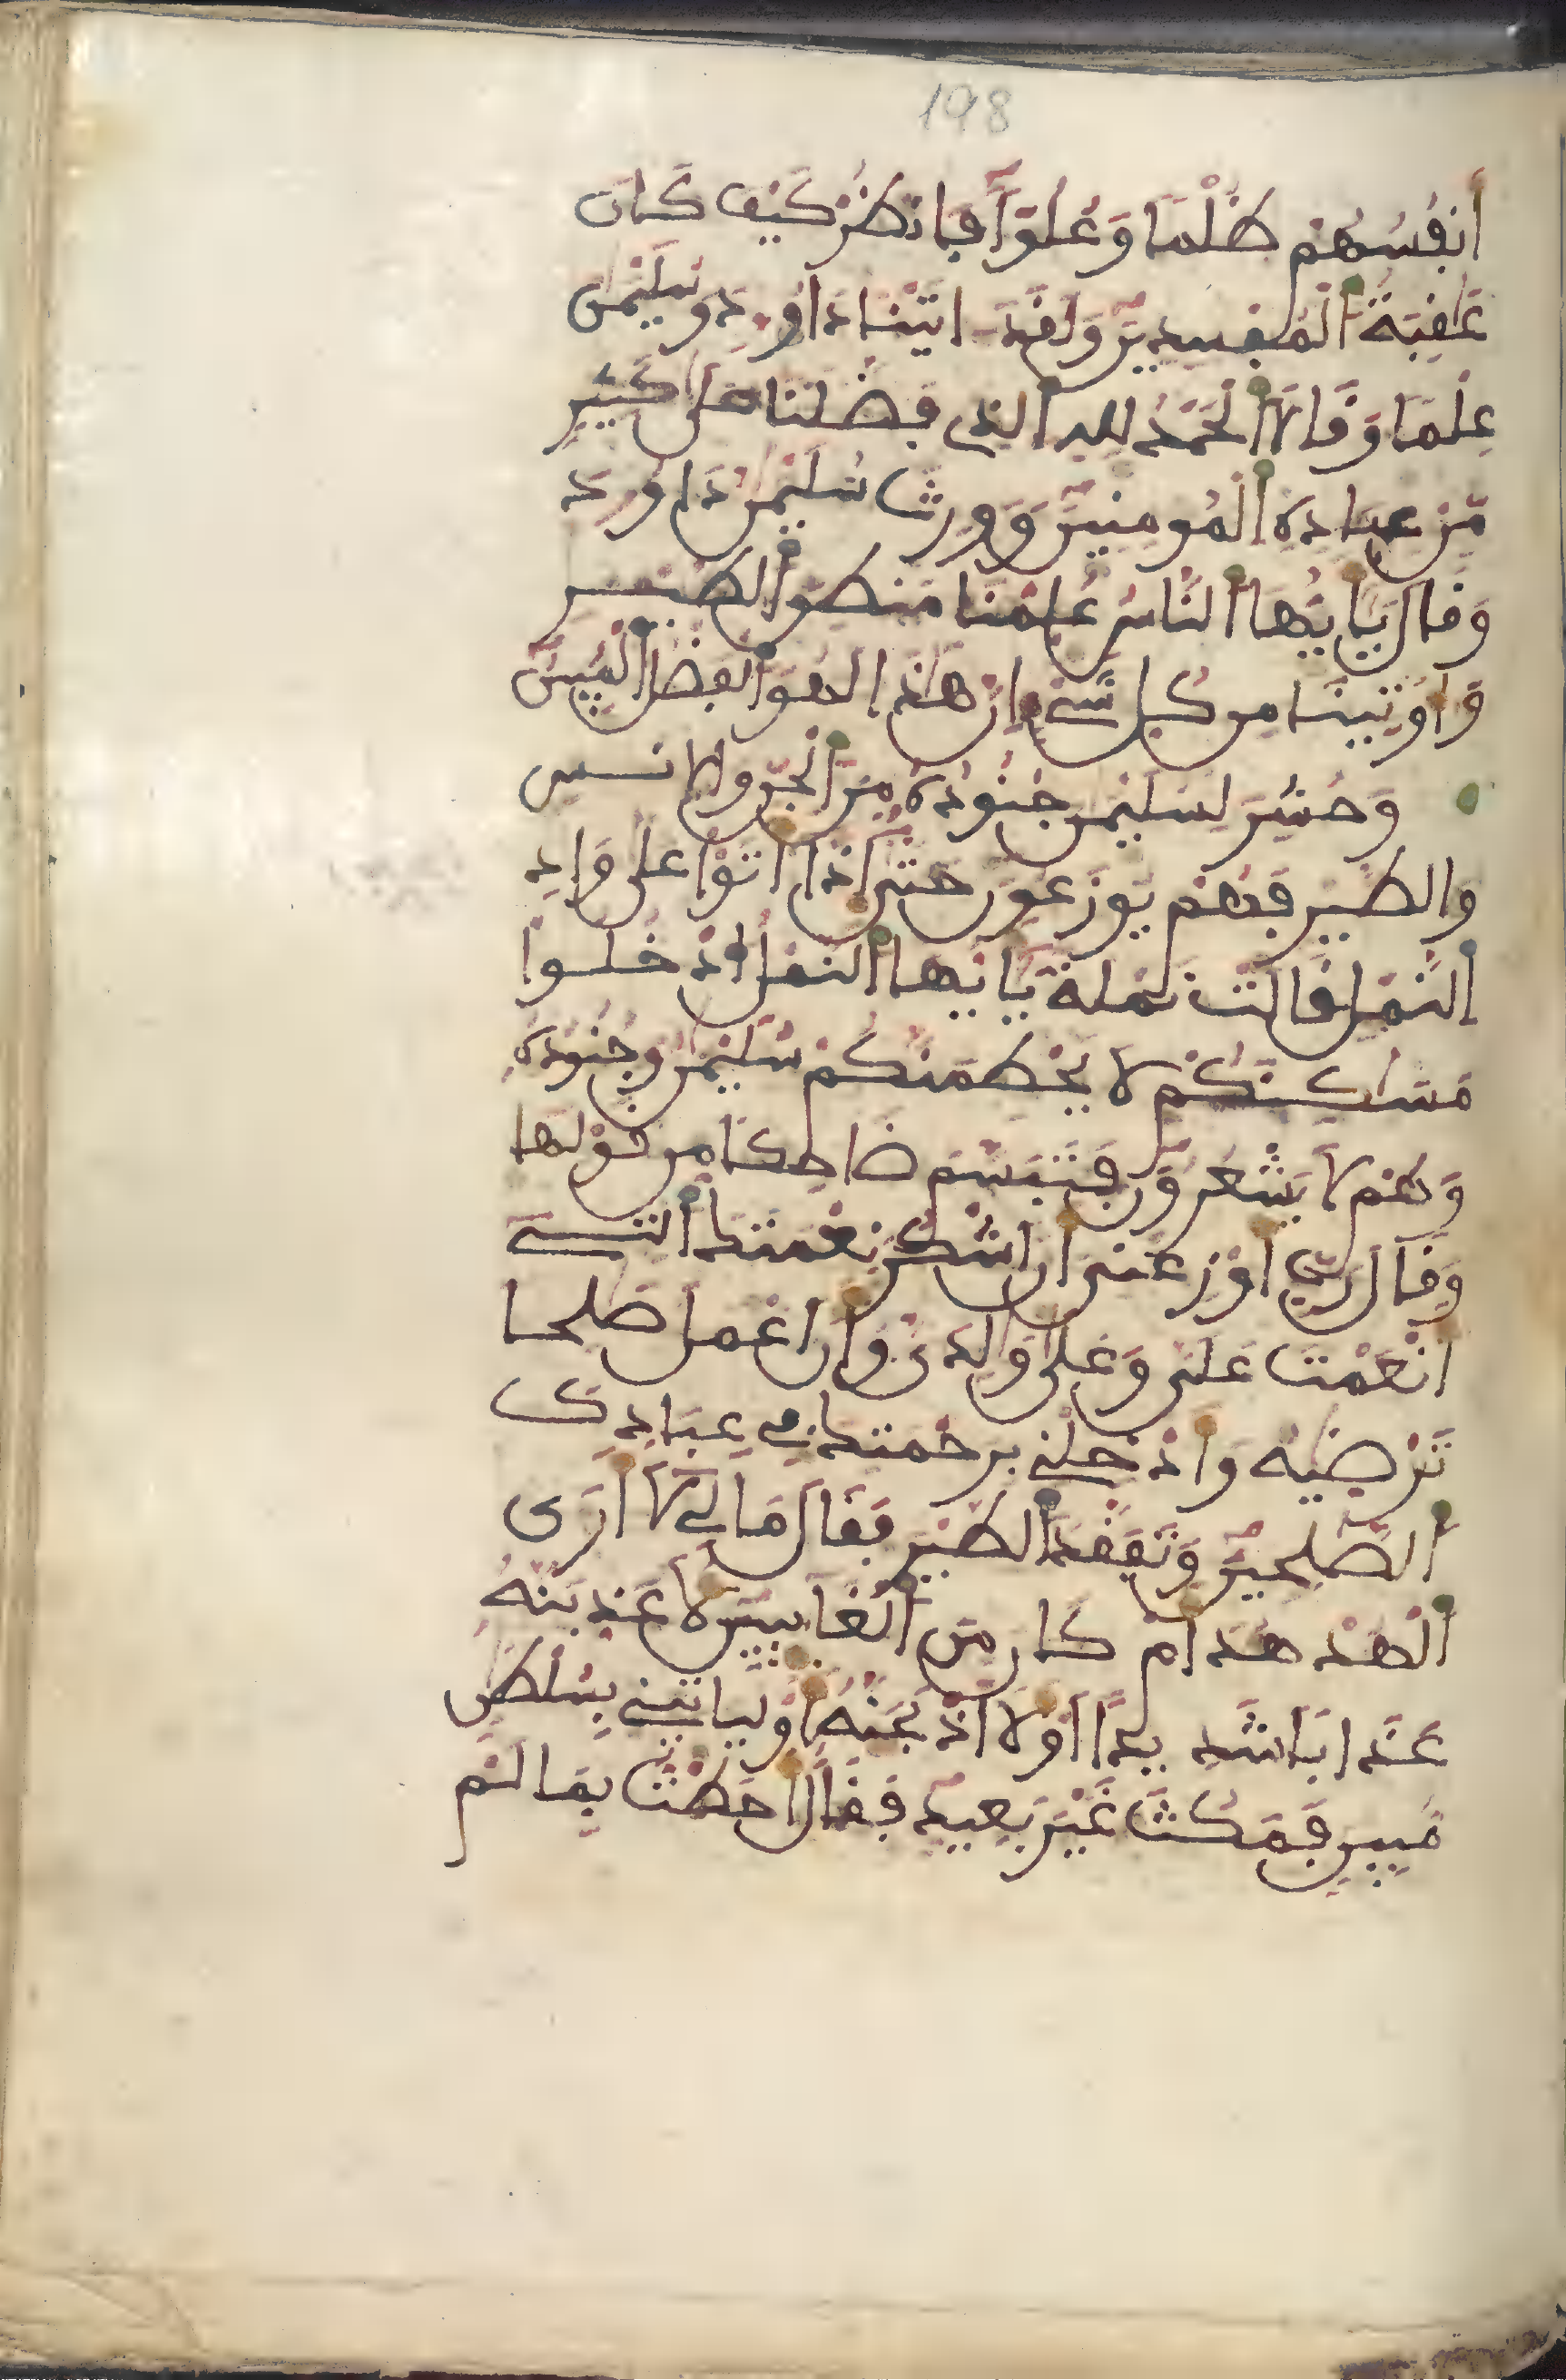 198
أَنفُسُهُمْ ظُلْمًا وَعُلُوًّا فَانظُرْ كَيْفَ كَانَ
عَٰقِبَةُ الْمُفْسِدِينَ وَلَقَدَ اتَيْنَا دَاوُۥدَ وَسُلَيْمَٰنَ
عِلْمًا وَقَالَا الْحَمْدُ لِلهِ الذِى فَضَّلَنَا عَلَىٰ كَثِيرٍ
مِّنْ عِبَادِهِ الْمُومِنِينَ وَوَرِثَ سُلَيْمَٰنُ دَاوُۥدَ
وَقَالَ يَٰأَيُّهَا النَّاسُ عُلِّمْنَا مَنطِقَ الطَّيْرِ
وَأُوتِينَا مِن كُلِّ شَيْءٍ اِنَّ هَٰذَا لَهُوَ الْفَضْلُ الْمُبِينُ
وَحُشِرَ لِسُلَيْمَٰنَ جُنُودُهُۥ مِنَ الْجِنِّ وَالِانسِ
وَالطَّيْرِ فَهُمْ يُوزَعُونَ حَتَّىٰ إِذَا أَتَوْا عَلَىٰ وَادِ
النَّمْلِ قَالَتْ نَمْلَةٌ يَٰأَيُّهَا النَّمْلُ ادْخُلُوا
مَسَٰكِنَكُمْ لَا يَحْطِمَنَّكُمْ سُلَيْمَٰنُ وَجُنُودُهُۥ
وَهُمْ لَا يَشْعُرُونَ فَتَبَسَّمَ ضَاحِكًا مِّن قَوْلِهَا
وَقَالَ رَبِّ أَوْزِعْنِى أَنَ اشْكُرَ نِعْمَتَكَ الَّتِى
أَنْعَمْتَ عَلَىَّ وَعَلَىٰ وَٰلِدَىَّ وَأَنَ اعْمَلَ صَٰلِحًا
تَرْضَيٰهُ وَأَدْخِلْنِى بِرَحْمَتِكَ فِى عِبَادِكَ
الصَّٰلِحِينَ وَتَفَقَّدَ الطَّيْرَ فَقَالَ مَالِىَ لَا أَرَى
الْهُدْهُدَ أَمْ كَانَ مِنَ الْغَائِبِينَ لَأُعَذِّبَنَّهُۥ
عَذَابًا شَدِيدًا أَوْ لَأَاْذْبَحَنَّهُۥ أَوْ لَيَاتِيَنِّى بِسُلْطَٰنٍ
مُّبِينٍ فَمَكُثَ غَيْرَ بَعِيدٍ فَقَالَ أَحَطتُّ بِمَا لَمْ